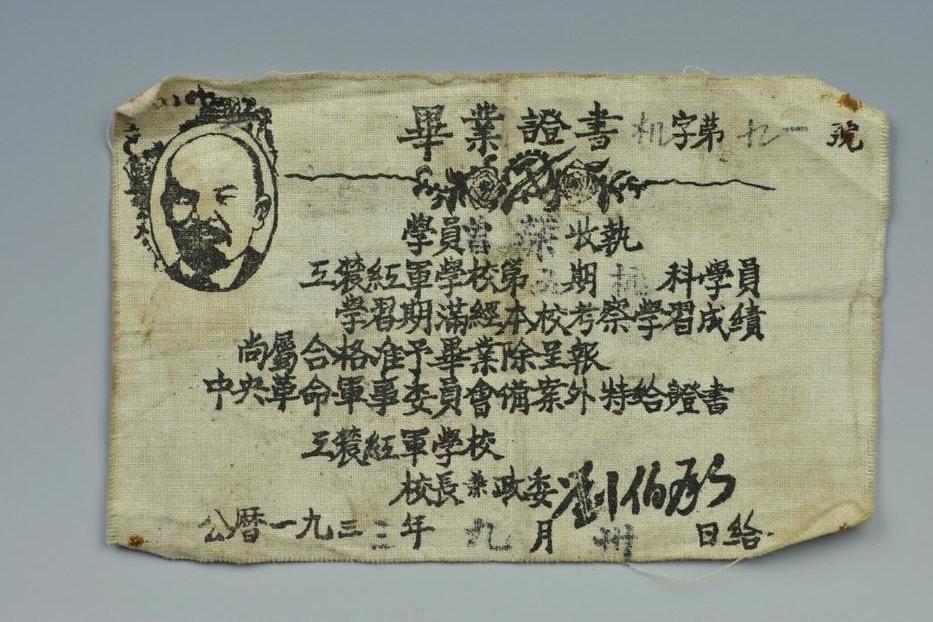 畢業證書 机字第九一號
學員曾 荣 收執
工農紅軍學校第五期機科學員
學習期滿經本校考察學習成績
尚屬合格准予畢業除呈報
中央革命軍事委員會備案外特給證書
工農紅軍學校
校長兼政委劉伯承
公曆一九三三年九月卅日給